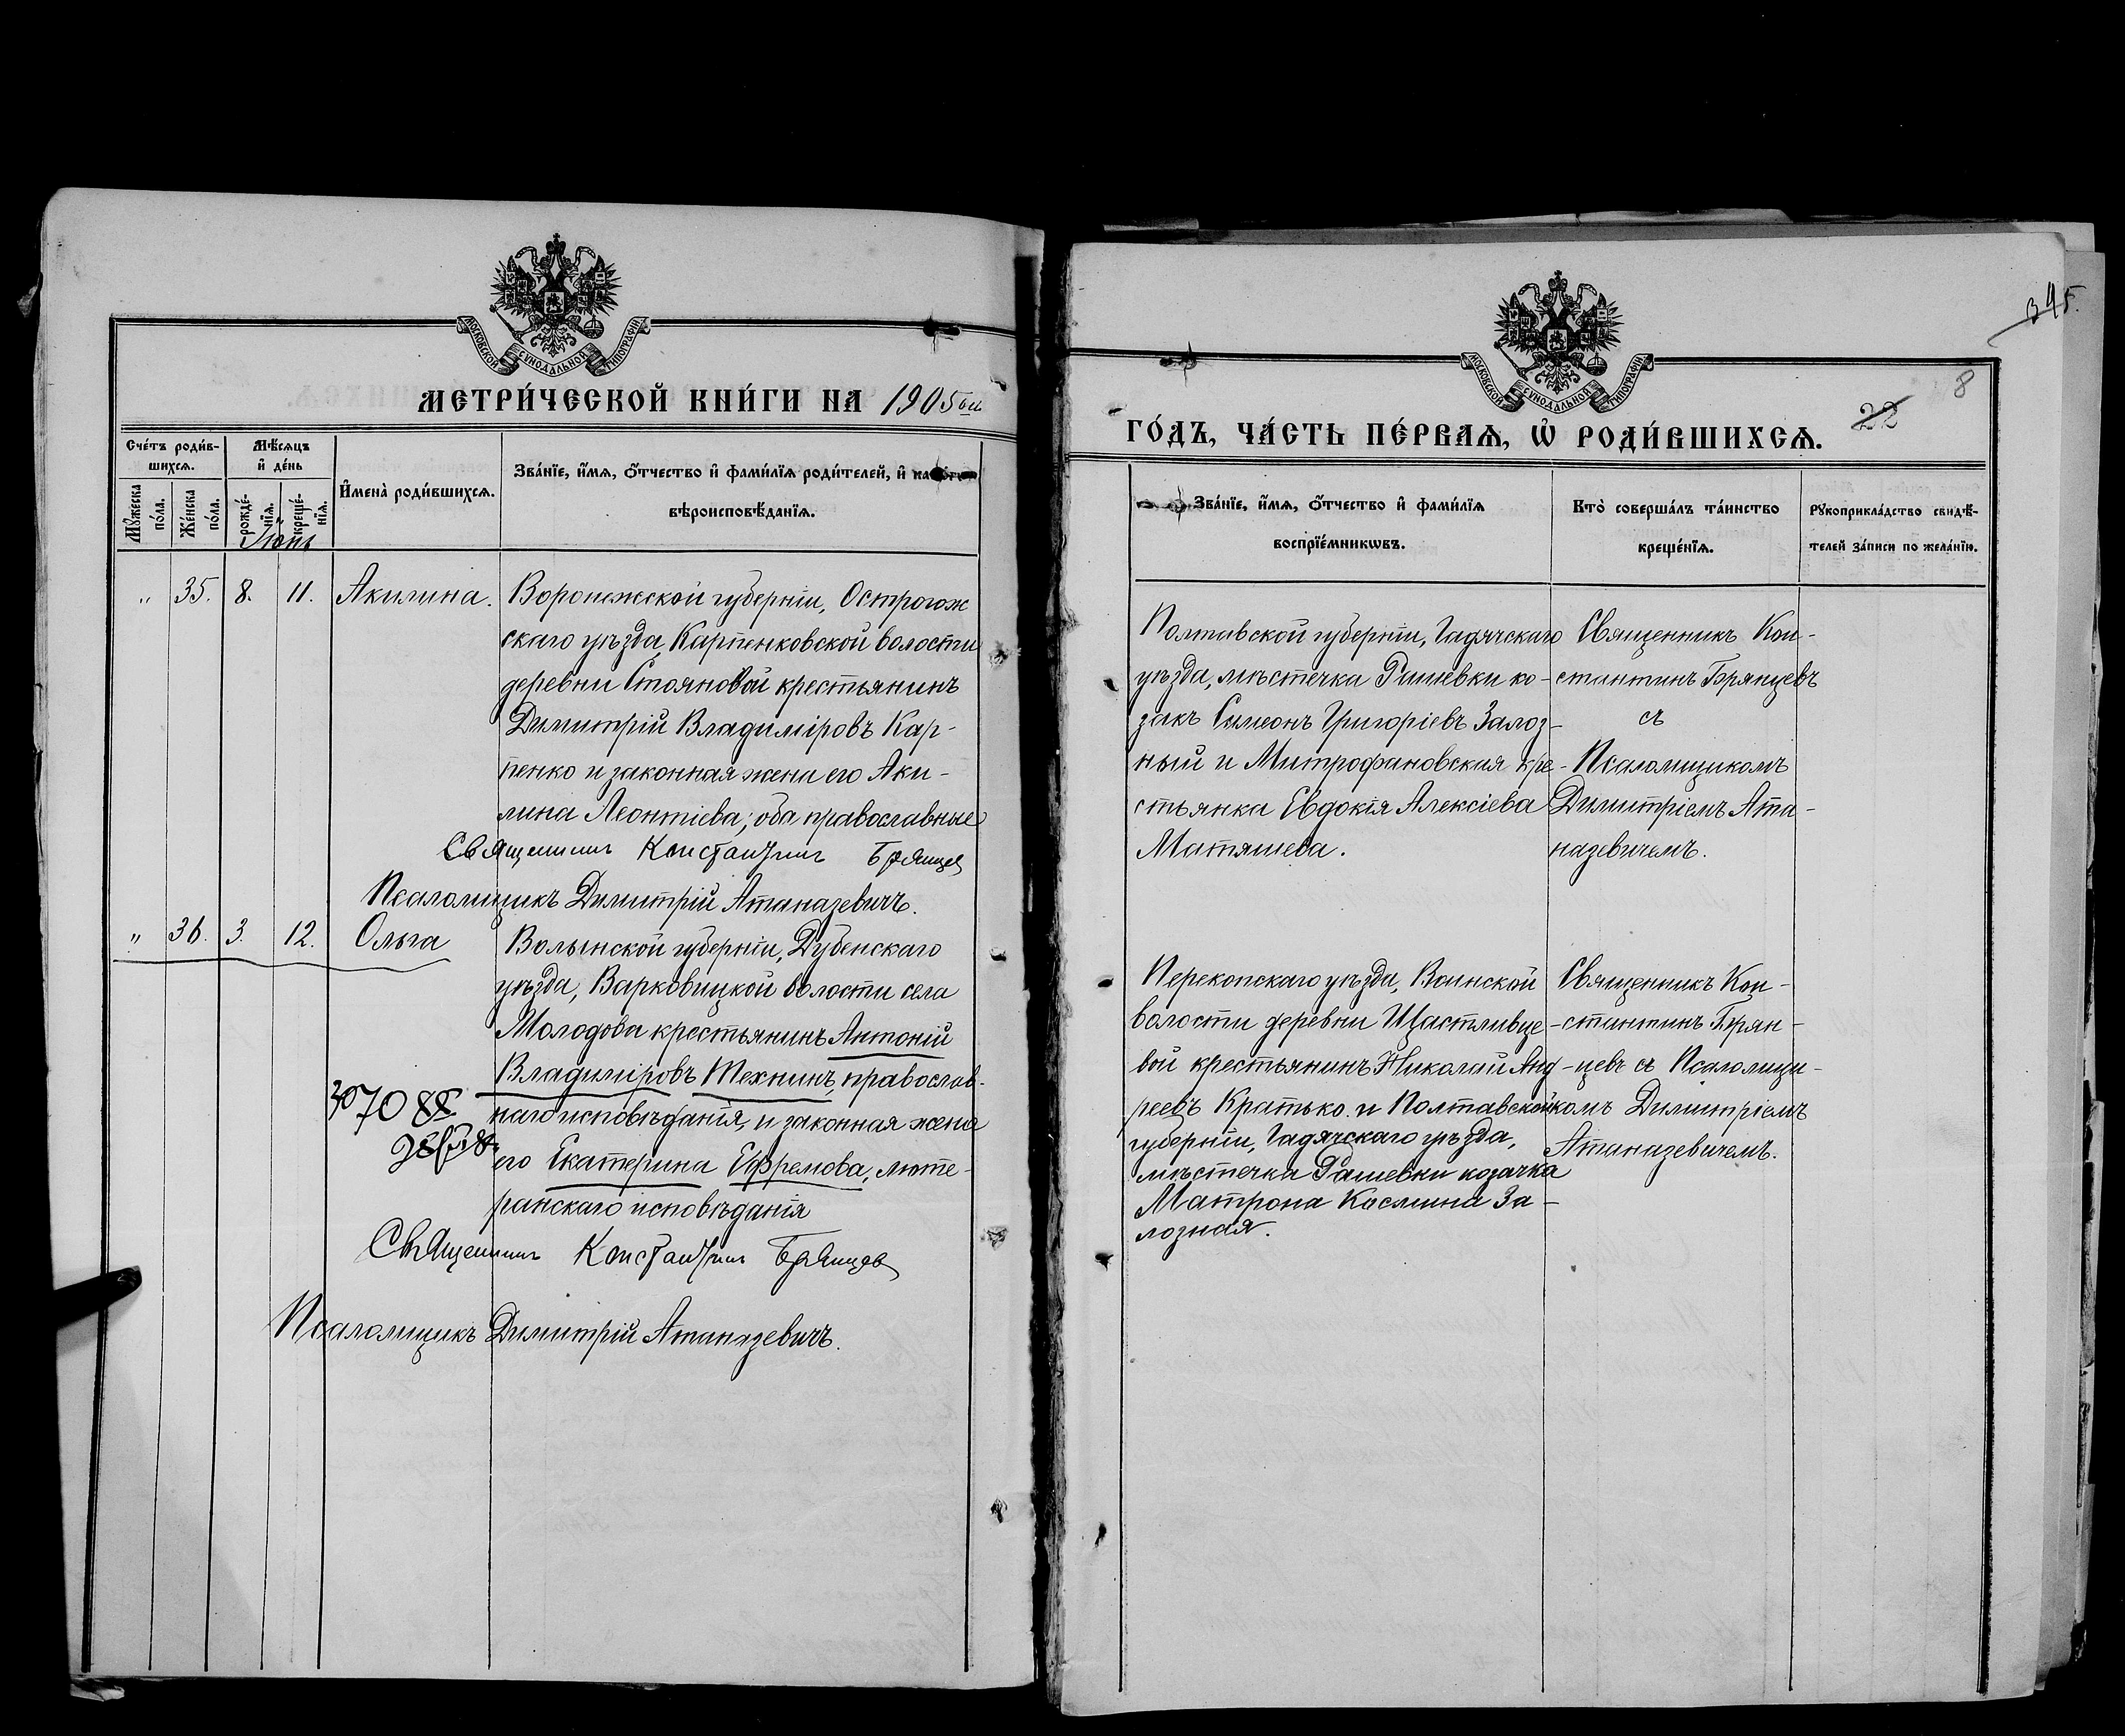 МОСКОВСКОЙ СУНОДАЛЬНОЙ ТИПОГРАФІИ
МЕТРИ́ЧЕСКОЙ КНИ́ГИ НА 1905ый
Сче́тъ роди́в-
шихсѧ.
Мꙋ́жеска
по́ла.
Же́нска
по́ла.
Мѣ́сѧцъ
и҆ де́нь
рожде́-
нїѧ.
креще́-
нїѧ.
Іюнь
И҆мена̀ роди́вшихсѧ.
Зва́нїе, и҆́мѧ, ѻ҆́тчество и҆ фами́лїѧ роди́телей, и҆
вѣроисповѣ́данїѧ.
„ 35. 8. 11. Акилина.
Воронежской губерніи, Острогож
скаго уѣзда, Карпенковской волости
деревни Стояновой крестьянинъ
Димитрій Владиміровъ Кар-
пенко и законная жена его Аки-
лина Леонтіева; оба православные
Священникъ Константинъ Брянцев
Псаломщикъ Димитрій Атаназевичъ.
„ 36. 3. 12. Ольга
Волынской губерніи, Дубенскаго
уѣзда, Варковицкой волости села
Молодова крестьянинъ Антоній
Владиміровъ Техничъ, православ-
наго исповѣданія, и законная жена
его Екатерина Ефремова, люте-
ранскаго исповѣданія
Священникъ Константинъ Брянцев
Псаломщикъ Димитрій Атаназевичъ.
345.
8
22
МОСКОВСКОЙ СУНОДАЛЬНОЙ ТИПОГРАФІИ
ГО́ДЪ, ЧА́СТЬ ПЕ́РВАѦ, Ѡ҆ РОДИ́ВШИХСѦ.
Зва́нїе, и҆́мѧ, ѻ҆́тчество и҆ фами́лїѧ
воспрїе́мникѡвъ.
Кто̀ соверша́лъ та́инство
креще́нїѧ.
Рꙋкоприкла́дство свидѣ́-
телей за́писи по жела́нїю.
Полтавской губерніи, Гадячскаго
уѣзда, мѣстечка Рашевки ко-
закъ Симеонъ Григоріевъ Залоз-
ный и Митрофановская кре-
стьянка Евдокія Алексіева
Матяшева.
Священникъ Кон-
стантинъ Брянцевъ
съ
Псаломщикомъ
Димитріемъ Ата-
назевичемъ.
Перекопскаго уѣзда, Воинской
волости деревни Щастливце-
вой крестьянинъ Николай Анд-
реевъ Кратько и Полтавской
губерніи, Гадячскаго уѣзда,
мѣстечка Рашевки козачка
Матрона Космина За-
лозная.
Священникъ Кон-
стантинъ Брян-
цевъ съ Псаломщи-
комъ Димитріемъ
Атаназевичемъ.